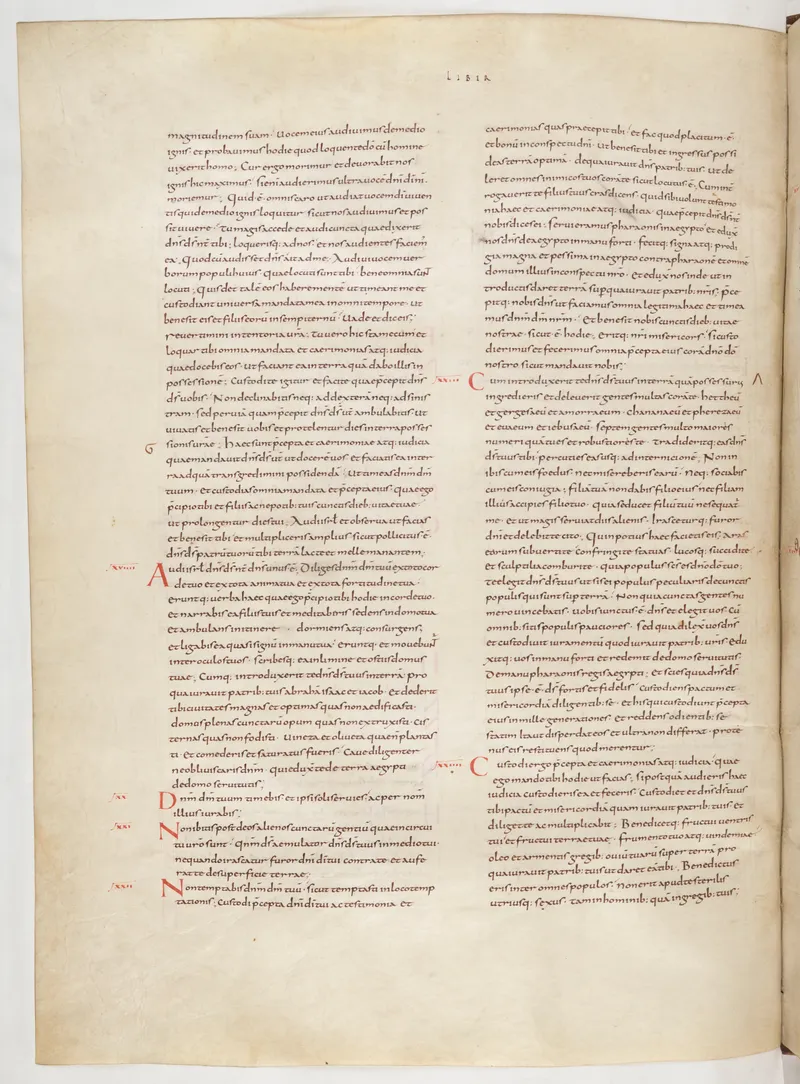 LIBER
magnitudinem suam · Uocem eius audiuimus de medio
ignis · et probauimus hodie quod loquente dō cū homine
uixerit homo ; Cur ergo morimur et deuorabit nos
ignis hic maximus · si enī audierimus ultra uocē dn̄i dī nr̄i ·
moriemur ; Quid ē omnis caro ut audiat uocem dī uiuen
tis qui de medio ignis loquitur · sicut nos audiuimus et pos
sit uiuere · Tu magis accede et audi cuncta quae dixerit
dn̄s d̄s nr̄ tibi ; loquerisq: ad nos · et nos audientes faciem
ea ; Quod cū audisset dn̄s ait ad me ; Audiui uocem uer
borum populi huius quae locuti sunt tibi · bene omnia sunt
locuti ; Quis det talē eos habere mentē ut timeant me et
custodiant uniuersa mandata mea in omni tempore · ut
bene sit eis et filiis eorū in sempiternū · Uade et dic eis ;
reuertimini in tentoria ur̄a ; Tu uero hic sta mecū et
loquar tibi omnia mandata et caerimonias atq: iudicia
quae docebis eos · ut faciant ea in terra quā dabo illis in
possessionē ; Custodite igitur et facite quae p̄cepit dn̄s
d̄s uobis · Non declinabitis neq: ad dexterā neq: ad sinis
tram · sed per uiā quam p̄cepit dn̄s d̄s ur̄ ambulabitis · ut
uiuatis et bene sit uobis et protelentur dies in terra posses
sionis ur̄ae ; Haec sunt p̄cepta et caerimoniae atq: iudicia
quae mandauit dn̄s d̄s ur̄ ut docerē uos · et faciatis ea in ter
ra ad quā transgredimini possidendā · Ut timeas dn̄m dm̄
tuum · et custodias omnia mandata et p̄cepta eius · quae ego
p̄cipio tibi et filiis ac nepotib: tuis cunctis dieb: uitae tuae ·
ut prolongentur dies tui ; Audi isrl̄ et obserua ut facias
et bene sit tibi et multipliceris amplius sicut pollicitus ē
dn̄s d̄s patrū tuorū tibi terrā lacte et melle manantem ;
xviiii Audi isrl̄ dn̄s d̄s nr̄ dn̄s unus ē ; Diliges dn̄m dm̄ tuū ex toto cor
de tuo et ex tota anima tua et ex tota fortitudine tua ·
eruntq: uerba haec quae ego p̄cipio tibi hodie in corde tuo ·
et narrabis ea filiis tuis et meditaberis sedens in domo tua
et ambulans in itinere · dormiens atq: consurgens ;
et ligabis ea quasi signū in manu tua · eruntq: et mouebunt̄
inter oculos tuos · scribesq: ea in limine et ostiis domus
tuae ; Cumq: introduxerit te dn̄s d̄s tuus in terrā pro
qua iurauit patrib: tuis abrahā isaac et iacob · et dederit
tibi ciuitates magnas et optimas quas non aedificasti ·
domus plenas cunctarū opum quas non extruxisti · cis
ternas quas non fodisti · Uineta et oliueta quae n̄ plantas
ti · Et comederis et saturatus fueris · Caue diligenter
ne obliuiscaris dn̄m · qui eduxit te de terra aegypti
de domo seruitutis ;
xx Dn̄m dm̄ tuum timebis et ipsi soli seruies · ac per nom̄
illius iurabis ;
xxi Non ibitis post deos alienos cunctarū gentiū quae in circui
tu ur̄o sunt · Qnm̄ d̄s aemulator dn̄s d̄s tuus in medio tui ·
nequando irascatur furor dn̄i dī tui contra te · et aufe
rat te de superficie terrae ;
xxii Non temptabis dn̄m dm̄ tuū · sicut temptasti in loco temp
tationis ; Custodi p̄cepta dn̄i dī tui ac testimonia et
caerimonias quas praecepit tibi · et fac quod placitum ē
et bonū in conspectu dn̄i · Ut bene sit tibi et ingressus possi
deas terrā optimā · de qua iurauit dn̄s patrib: tuis · ut de
leret omnes inimicos tuos corā te sicut locutus ē ; Cumq:
rogauerit te filius tuus cras dicens · quid sibi uolunt testimo
nia haec et caerimoniae atq: iudicia · quae p̄cepit dn̄s d̄s nr̄
nobis dices ei ; serui eramus pharaonis in aegypto et eduxit
nos dn̄s de aegypto in manu forti · fecitq: signa atq: prodi
gia magna et pessima in aegypto contra pharaonē et omnē
domum illius in conspectu nr̄o · Et eduxit nos inde ut in
troductis daret terrā sup qua iurauit patrib: nr̄is · p̄ce
pitq: nobis dn̄s ut faciamus omnia legitima haec et timea
mus dn̄m dm̄ nr̄m · Et bene sit nobis cunctis dieb: uitae
nostrae · sicut ē hodie ; Eritq: nr̄i misericors · si custo
dierimus et fecerimus omnia p̄cepta eius corā dn̄o dō
nostro sicut mandauit nobis ;
xxiii Cum introduxerit te dn̄s d̄s tuus in terrā quā possessurus
ingrederis et deleuerit gentes multas corā te · hettheū
et gergesaeū et amorraeum · chananaeū et pherezaeū
et euaeum et iebusaeū · septem gentes multo maioris
numeri quā tu es et robustiores te · Tradideritq: eas dn̄s
d̄s tuus tibi · percuties eas usq: ad internicionē ; Non in
ibis cum eis foedus · nec misereberis earū · neq: sociabis
cum eis coniugia ; filiā tuā non dabis filio eius nec filiam
illius accipies filio tuo · quia seducet filiū tuū ne sequat̄
me · et ut magis seruiat diis alienis · Irasceturq: furor
dn̄i et delebit te cito ; Quin potius haec facietis eis · Aras
eorum subuertite · confringite statuas · Lucosq: succidite ·
et sculptilia comburite · quia populus sc̄s es dn̄o dō tuo ;
Te elegit dn̄s d̄s tuus ut sis ei populus peculiaris de cunctis
populis qui sunt sup terrā · Non quia cunctas gentes nu
mero uincebatis · uobis iunctus ē dn̄s et elegit uos · cū
omnib: sitis populis pauciores · sed quia dilexit uos dn̄s
et custodiuit iuramentū quod iurauit patrib: ur̄is · Edu
xitq: uos in manu forti et redemit de domo seruitutis
De manu pharaonis regis aegypti ; Et scies quia dn̄s d̄s
tuus ipse ē d̄s fortis et fidelis · Custodiens pactum et
misericordiā diligentib: se · et his qui custodiunt p̄cepta
eius in mille generationes · Et reddens odientib: se
statim ita ut disperdat eos et ultra non differat · prote
nus eis restituens quod merentur ;
xxiiii Custodi ergo p̄cepta et caerimonias atq: iudicia · quae
ego mando tibi hodie ut facias ; Si postquā audieris haec
iudicia custodieris ea et feceris · Custodiet et dn̄s d̄s tuus
tibi pactū et misericordiā quam iurauit patrib: tuis · et
diliget te ac multiplicabit ; Benedicetq: fructui uentris
tui et fructui terrae tuae · frumento tuo atq: uindemiae
oleo et armentis gregib: ouiū tuarū super terrā pro
qua iurauit patrib: tuis ut daret eā tibi · Benedictus
eris inter omnes populos · Non erit apud te sterilis
utriusq: sexus · tam in hominib: quā in gregib: tuis ;